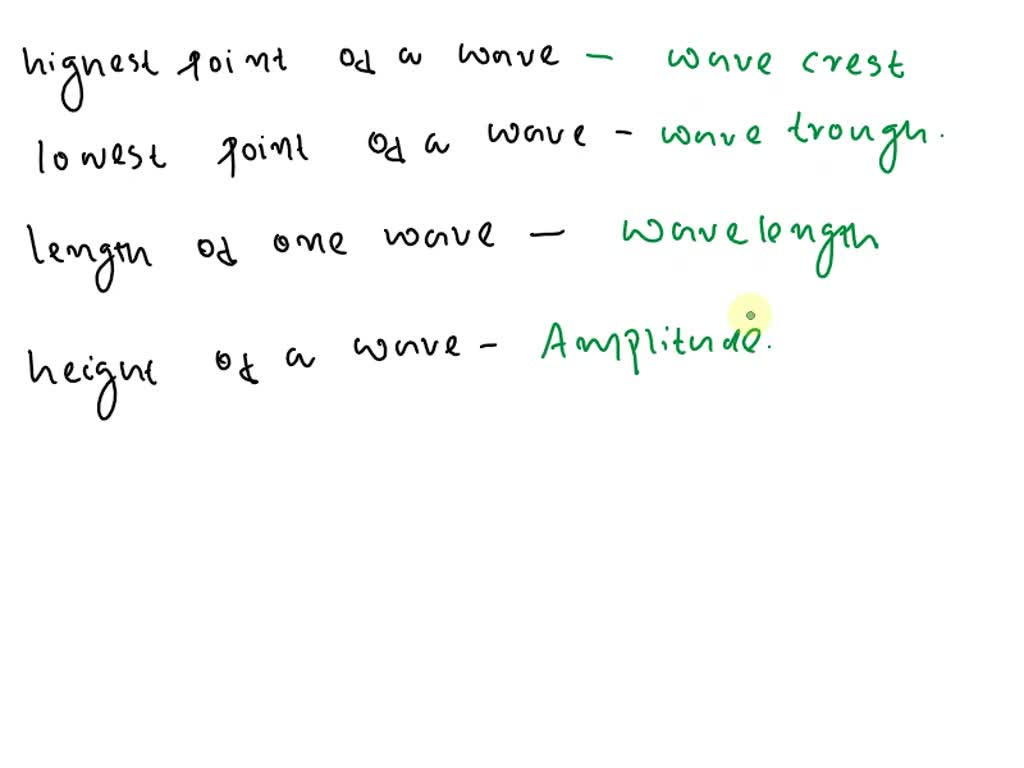 highest point of a wave - wave crest
lowest point of a wave - wave trough.
length of one wave - wavelength
height of a wave - Amplitude.